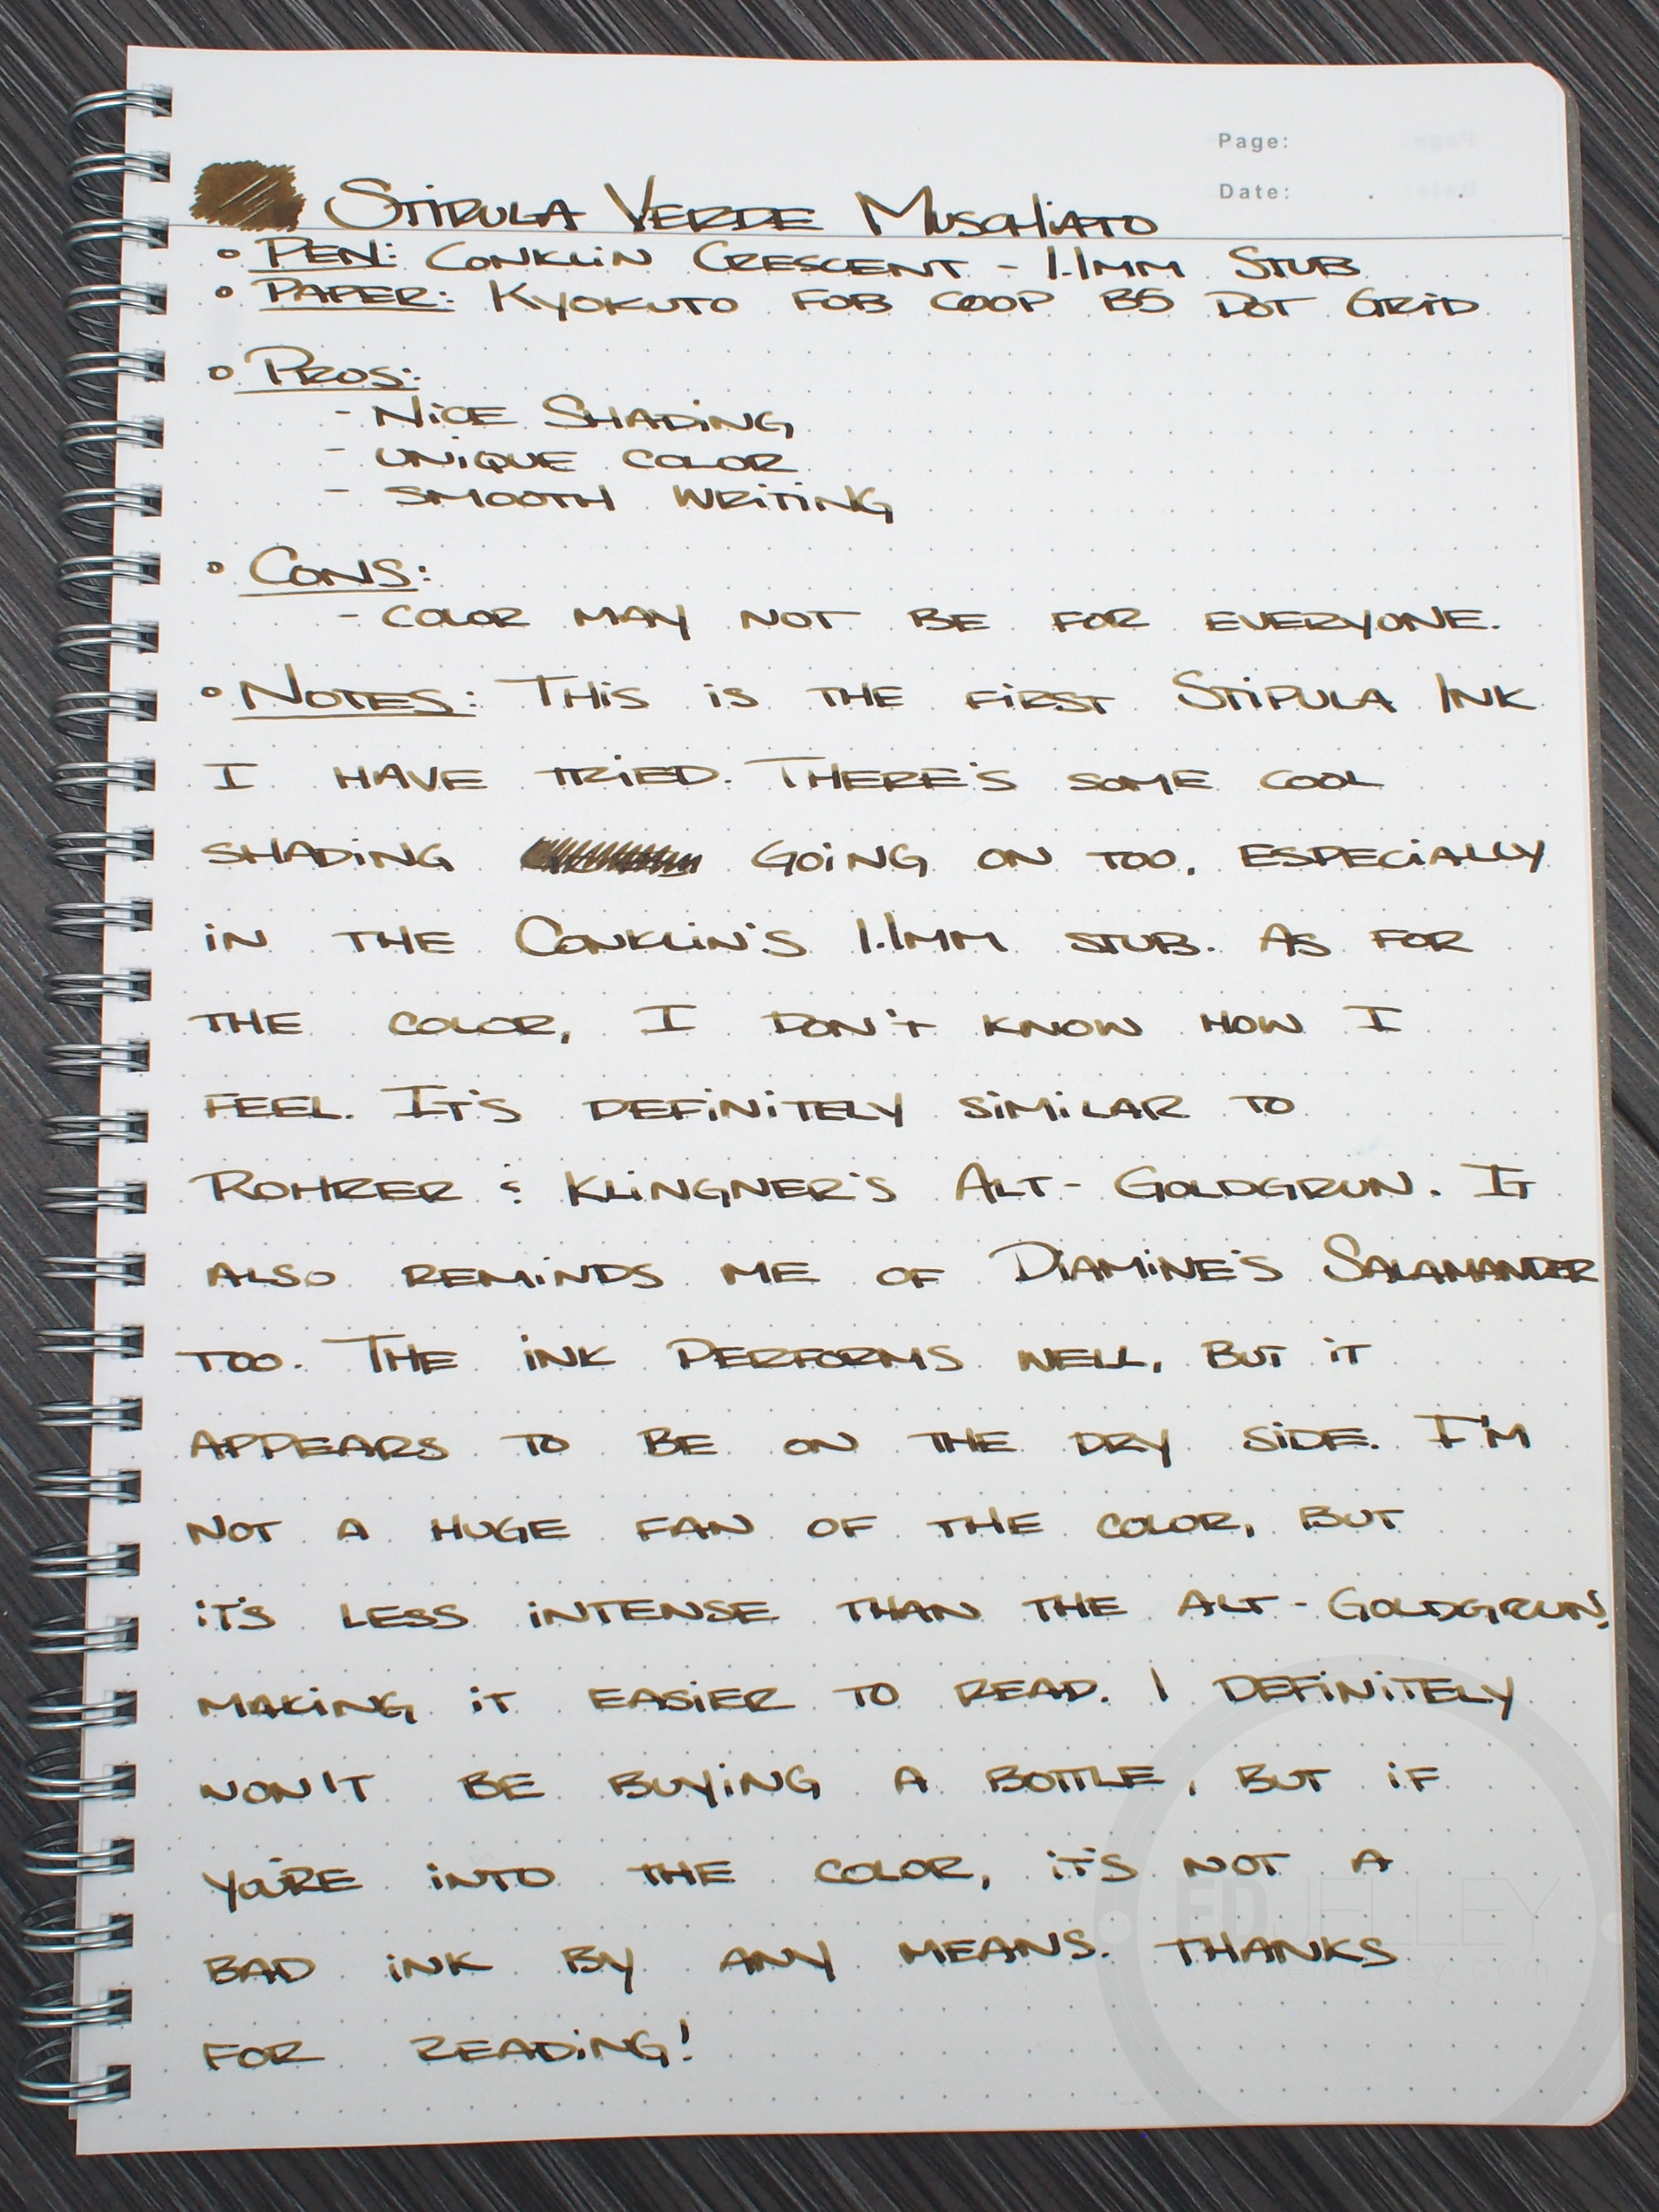 Page:
Date: . .
STIPULA VERDE MUSCHIATO
• PEN: CONKLIN CRESCENT - 1.1MM STUB
• PAPER: KYOKUTO FOB COOP B5 DOT GRID
• PROS:
- NICE SHADING
- UNIQUE COLOR
- SMOOTH WRITING
• CONS:
- COLOR MAY NOT BE FOR EVERYONE.
• NOTES: THIS IS THE FIRST STIPULA INK
I HAVE TRIED. THERE'S SOME COOL
SHADING GOING ON TOO, ESPECIALLY
IN THE CONKLIN'S 1.1MM STUB. AS FOR
THE COLOR, I DON'T KNOW HOW I
FEEL. IT'S DEFINITELY SIMILAR TO
ROHRER & KLINGNER'S ALT-GOLDGRUN. IT
ALSO REMINDS ME OF DIAMINE'S SALAMANDER
TOO. THE INK PERFORMS WELL, BUT IT
APPEARS TO BE ON THE DRY SIDE. I'M
NOT A HUGE FAN OF THE COLOR, BUT
IT'S LESS INTENSE THAN THE ALT-GOLDGRUN,
MAKING IT EASIER TO READ. I DEFINITELY
WON'T BE BUYING A BOTTLE, BUT IF
YOU'RE INTO THE COLOR, IT'S NOT A
BAD INK BY ANY MEANS. THANKS
FOR READING!
EDJELLEY